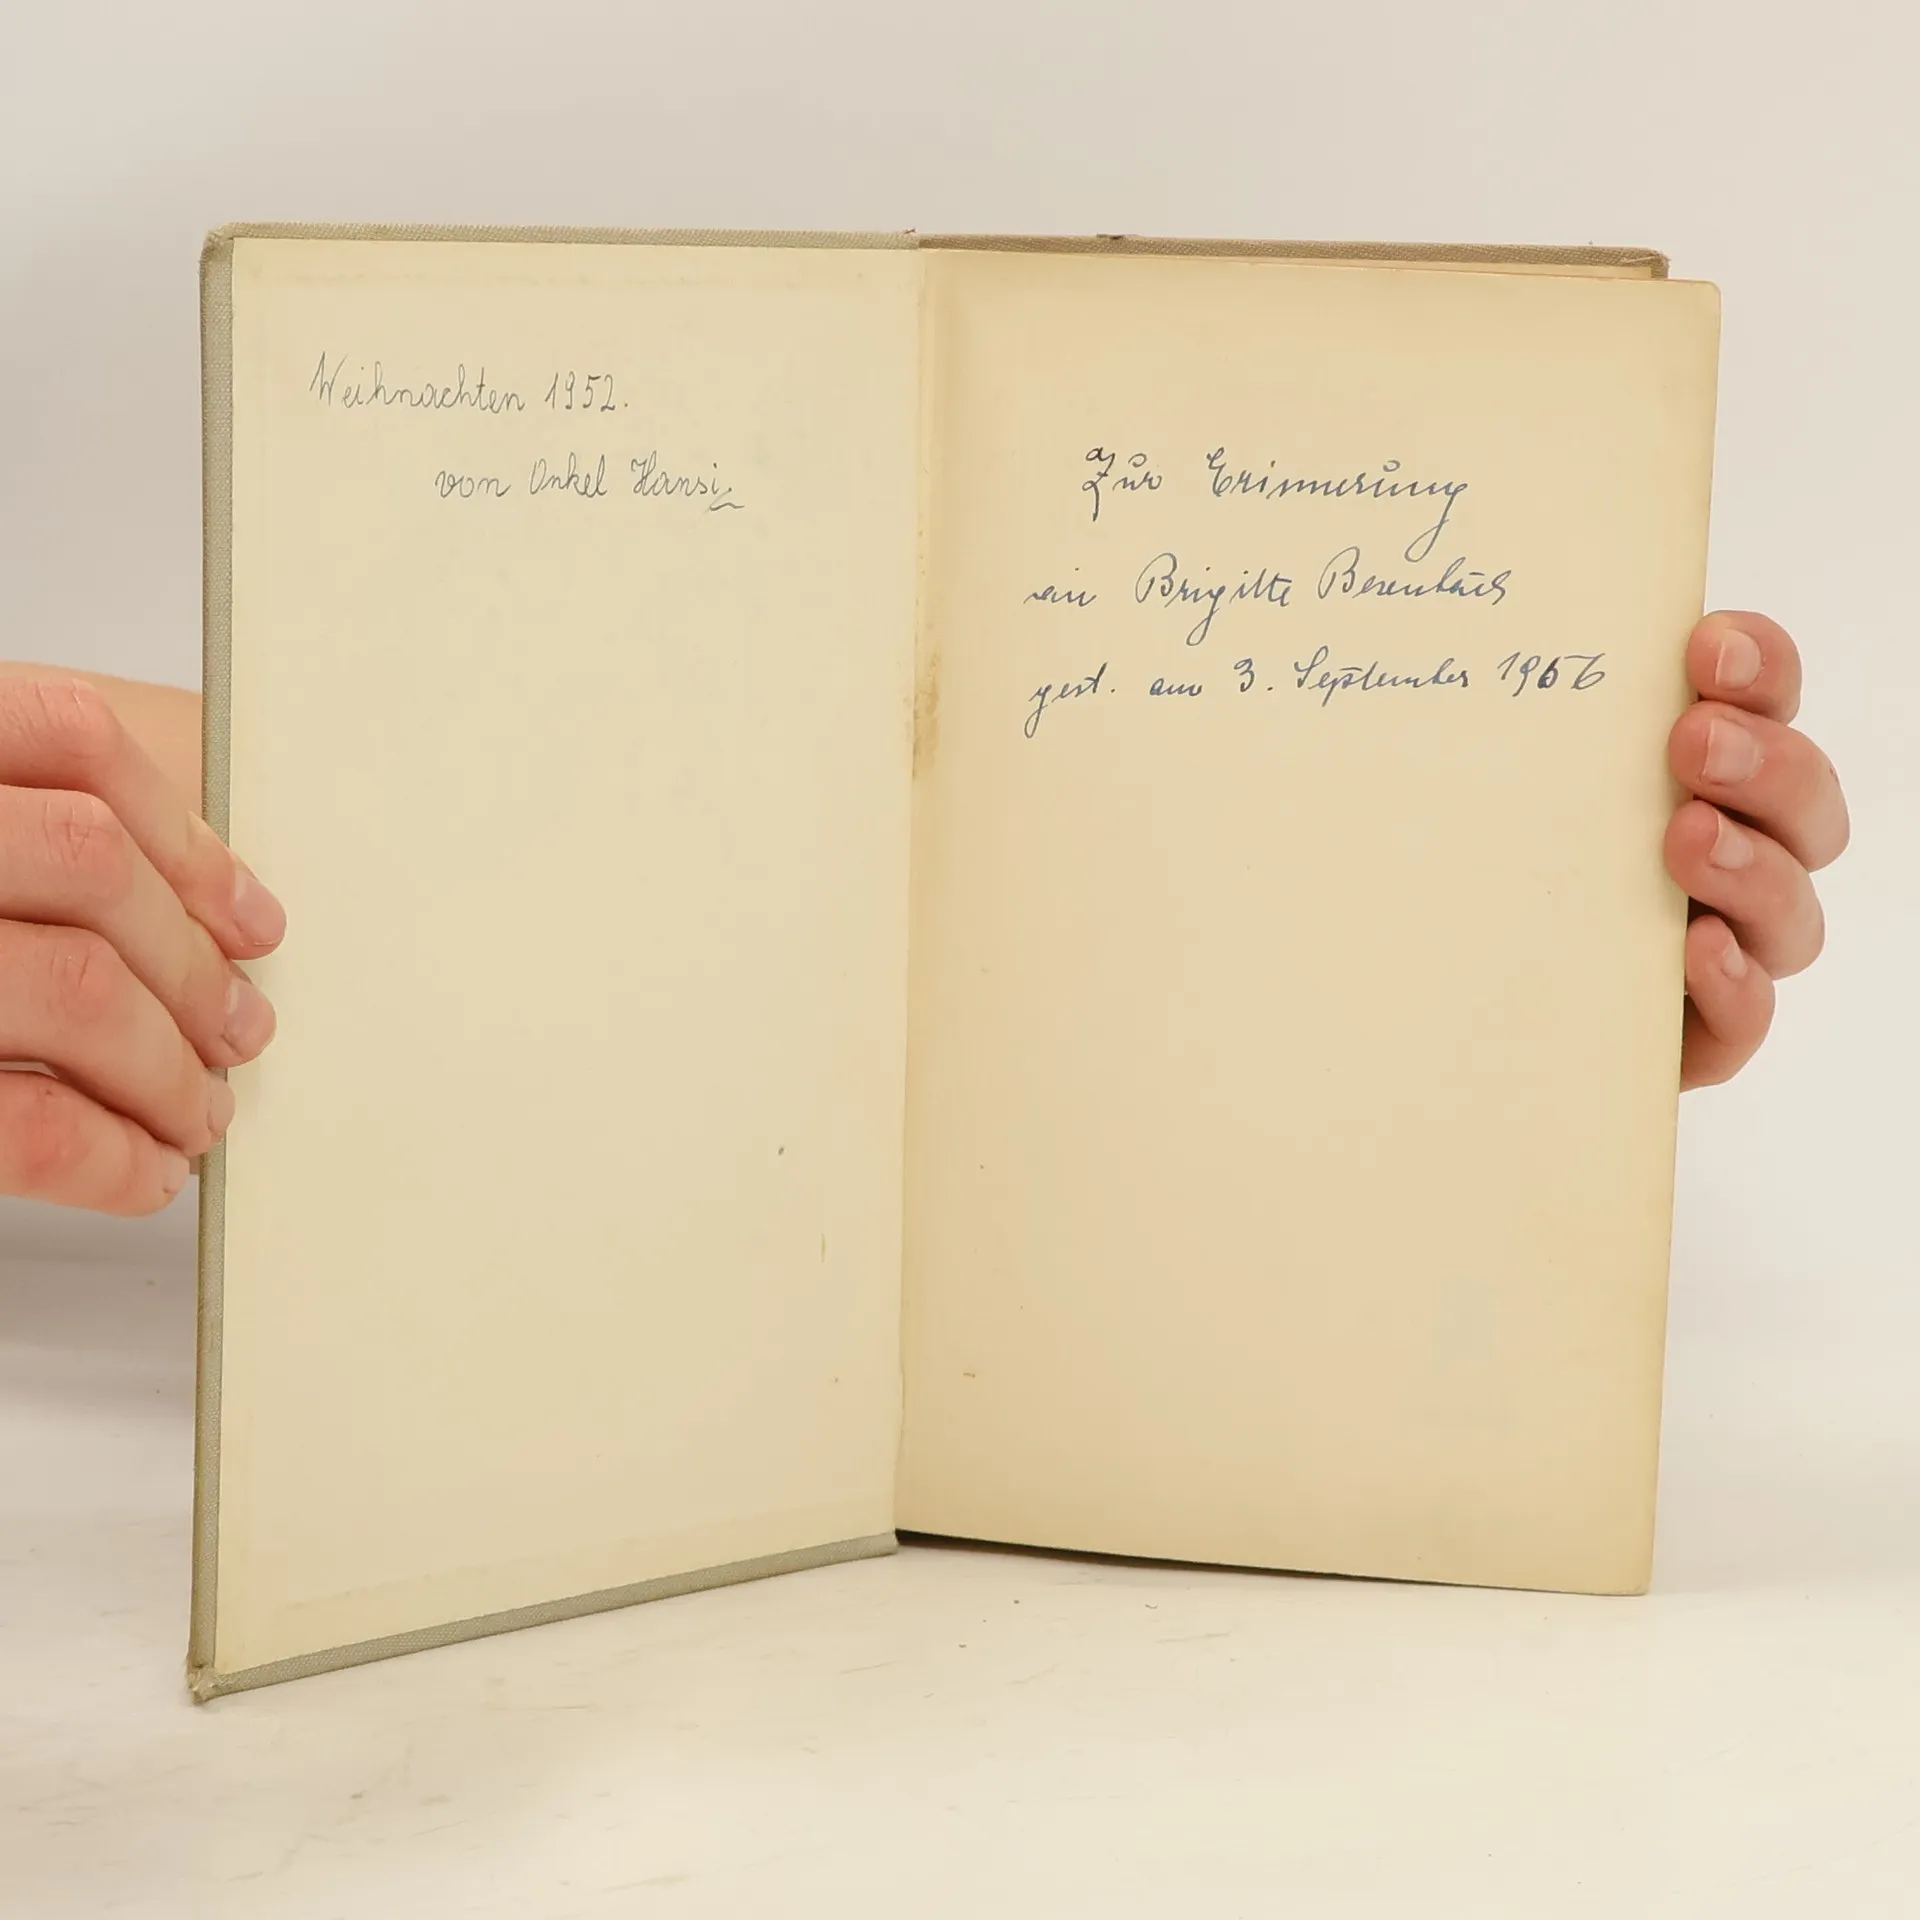 Weihnachten 1952.
von Onkel Hansi
Zur Erinnerung
an Brigitte
gest. am 3. September 1956